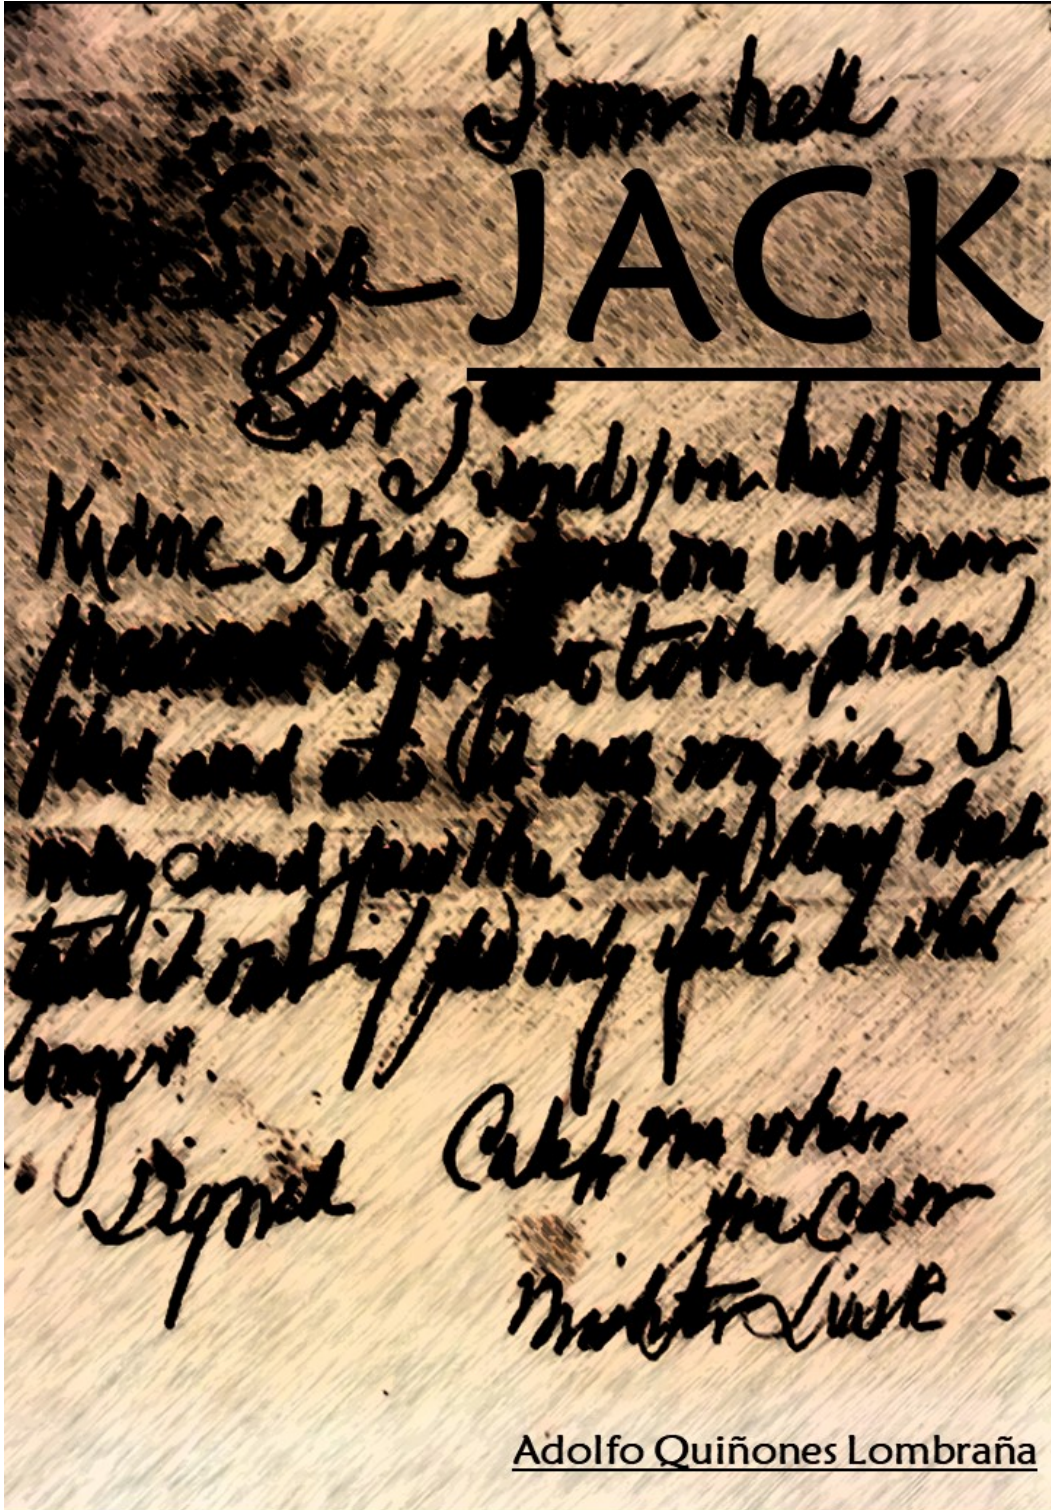 From hell
JACK
Sor
I send you half the
Kidne I took from one women
prasarved it for you tother piece
fried and ate it was very nise I
may send you the bloody knif that
took it out if you only wate a whil
longer.
Signed
Catch me when
you Can
Mishter Lusk.
Adolfo Quiñones Lombraña